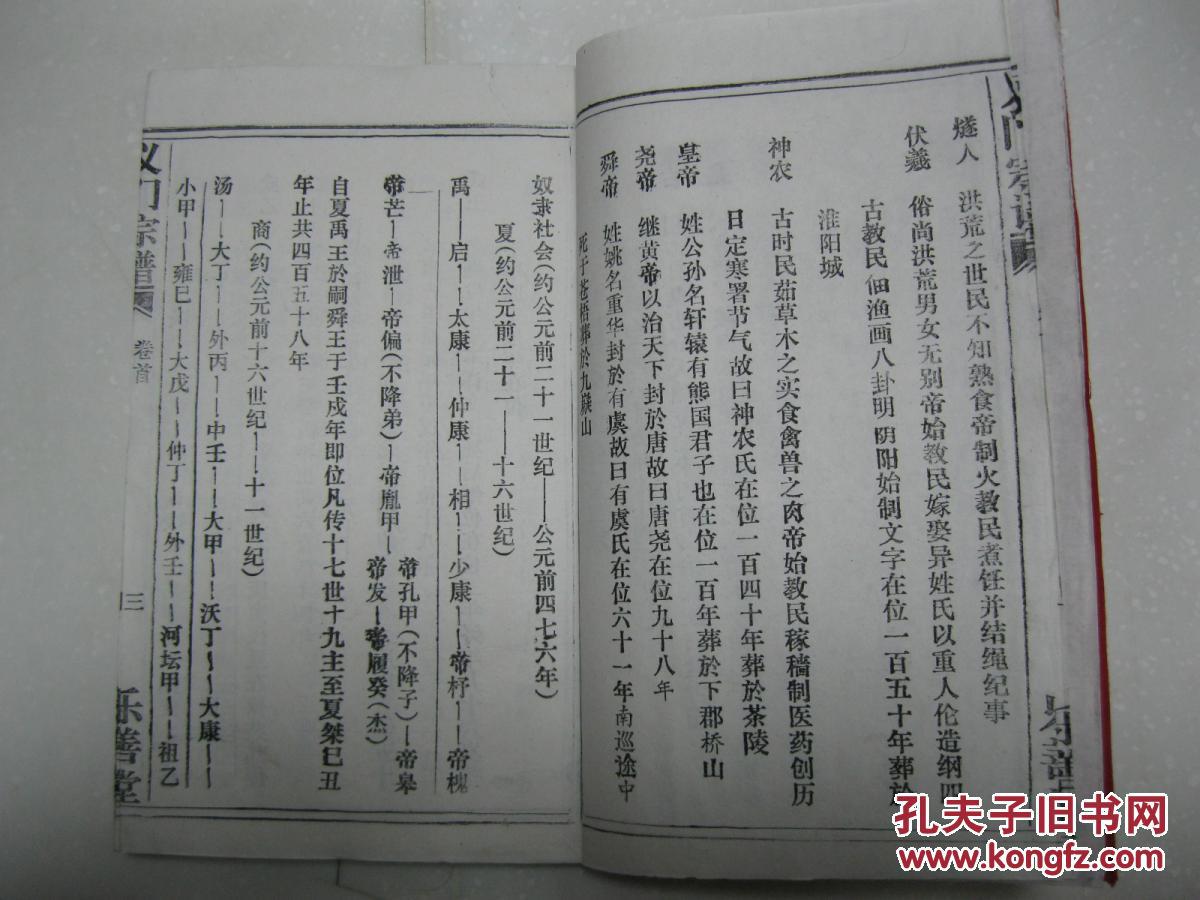 燧人 洪荒之世民不知熟食帝制火教民煮饪并结绳纪事
伏羲 俗尚洪荒男女无别帝始教民嫁娶异姓氏以重人伦造纲四
古教民佃渔画八卦明阴阳始制文字在位一百五十年葬於
淮阳城
神农 古时民茹草木之实食禽兽之肉帝始教民稼穑制医药创历
日定寒署节气故曰神农氏在位一百四十年葬於茶陵
皇帝 姓公孙名轩辕有熊国君子也在位一百年葬於下郡桥山
尧帝 继黄帝以治天下封於唐故曰唐尧在位九十八年
舜帝 姓姚名重华封於有虞故曰有虞氏在位六十一年南巡途中
死于苍梧葬於九嶷山
奴隶社会(约公元前二十一世纪——公元前四七六年)
夏(约公元前二十一——十六世纪)
禹——启——太康——仲康——相——少康——帝杼——帝槐
帝芒—帝泄—帝偏(不降弟)—帝胤甲—帝孔甲(不降子)—帝皋
帝发—帝履癸(杰)
自夏禹王於嗣舜王于壬戍年即位凡传十七世十九主至夏桀巳丑
年止共四百五十八年
商(约公元前十六世纪——十一世纪)
汤——大丁——外丙——中壬——大甲——沃丁——大康——
小甲——雍巳——大戊——仲丁——外壬——河坛甲——祖乙
义门宗谱 卷首 三 乐善堂
孔夫子旧书网
www.kongfz.com